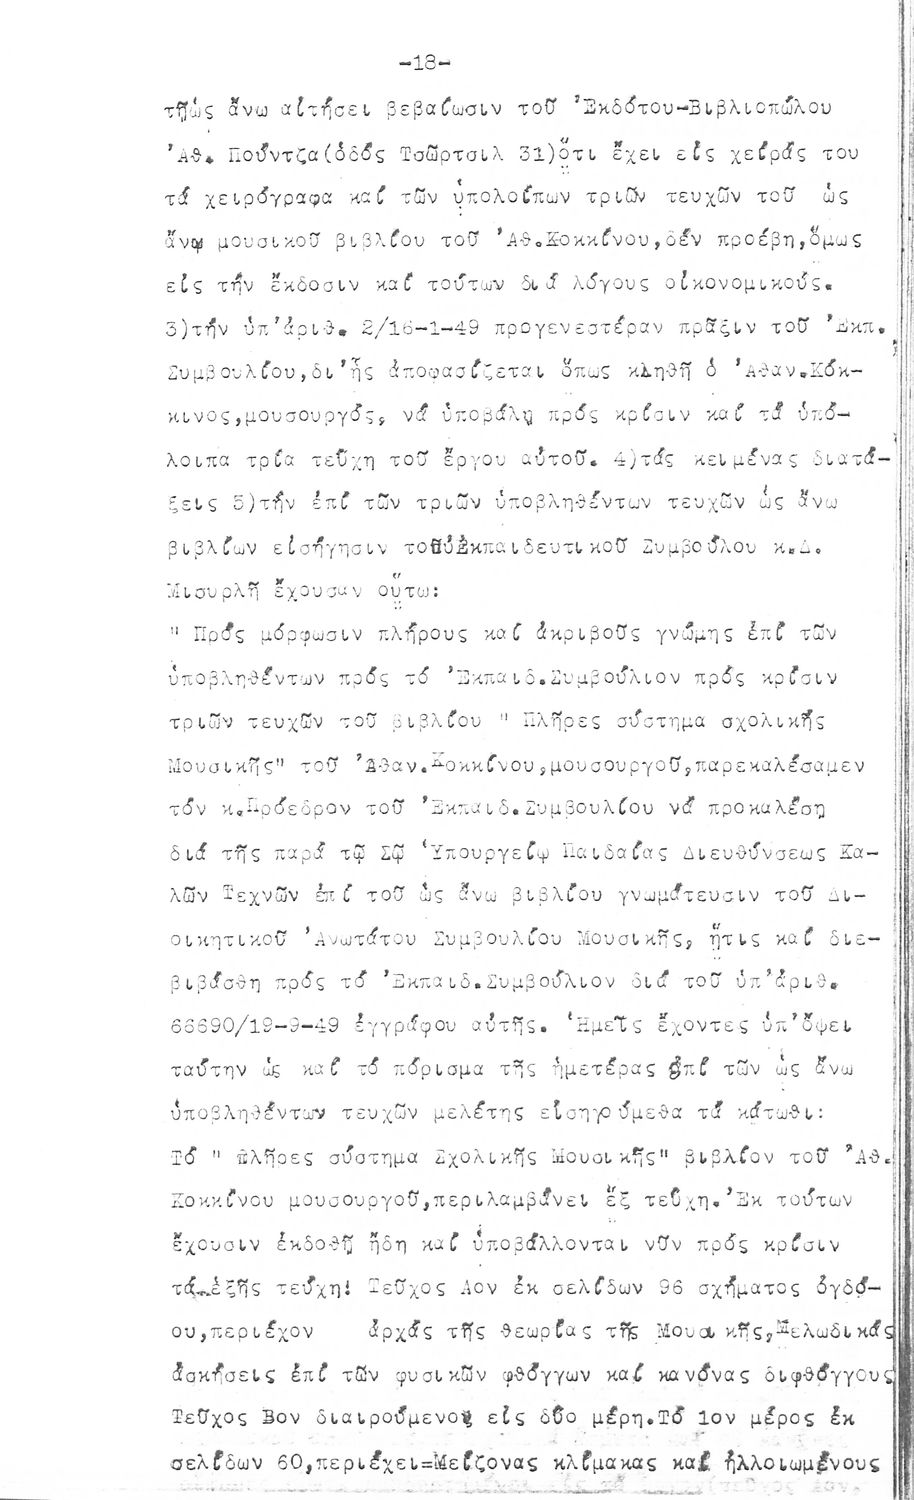 -18-
τῆς ὡς ἄνω αἰτήσει βεβαίωσιν τοῦ Ἐκδότου-Βιβλιοπώλου
Ἀθ. Πούντζα(ὁδός Τσῶρτσιλ 31)ὅτι ἔχει εἰς χεῖράς του
τά χειρόγραφα καί τῶν ὑπολοίπων τριῶν τευχῶν τοῦ ὡς
ἄνω μουσικοῦ βιβλίου τοῦ Ἀθ.Κοκκίνου,δέν προέβη,ὅμως
εἰς τήν ἔκδοσιν καί τούτων διά λόγους οἰκονομικούς.
3)τήν ὑπ'ἀριθ. 2/16-1-49 προγενεστέραν πρᾶξιν τοῦ Ἐκπ.
Συμβουλίου,δι'ἧς ἀποφασίζεται ὅπως κληθῇ ὁ Ἀθαν.Κόκ-
κινος,μουσουργός, νά ὑποβάλῃ πρός κρίσιν καί τά ὑπό-
λοιπα τρία τεῦχη τοῦ ἔργου αὐτοῦ. 4)τάς κειμένας διατά-
ξεις 5)τήν ἐπί τῶν τριῶν ὑποβληθέντων τευχῶν ὡς ἄνω
βιβλίων εἰσήγησιν τοῦ Ἐκπαιδευτικοῦ Συμβούλου κ.Δ.
Μισυρλῆ ἔχουσαν οὕτω:
" Πρός μόρφωσιν πλήρους καί ἀκριβοῦς γνώμης ἐπί τῶν
ὑποβληθέντων πρός τό Ἐκπαιδ.Συμβούλιον πρός κρίσιν
τριῶν τευχῶν τοῦ βιβλίου " Πλῆρες σύστημα σχολικῆς
Μουσικῆς" τοῦ Ἀθαν.Κοκκίνου,μουσουργοῦ,παρεκαλέσαμεν
τόν κ.Πρόεδρον τοῦ Ἐκπαιδ.Συμβουλίου νά προκαλέσῃ
διά τῆς παρά τῷ Σῷ Ὑπουργείῳ Παιδαίας Διευθύνσεως Κα-
λῶν Τεχνῶν ἐπί τοῦ ὡς ἄνω βιβλίου γνωμάτευσιν τοῦ Δι-
οικητικοῦ Ἀνωτάτου Συμβουλίου Μουσικῆς, ἥτις καί διε-
βιβάσθη πρός τό Ἐκπαιδ.Συμβούλιον διά τοῦ ὑπ'ἀριθ.
66690/19-9-49 ἐγγράφου αὐτῆς. Ἡμεῖς ἔχοντες ὑπ'ὄψει
ταύτην ὡς καί τό πόρισμα τῆς ἡμετέρας ἐπί τῶν ὡς ἄνω
ὑποβληθέντων τευχῶν μελέτης εἰσηγούμεθα τά κάτωθι:
Τό " Πλῆρες σύστημα Σχολικῆς Μουσικῆς" βιβλίον τοῦ Ἀθ.
Κοκκίνου μουσουργοῦ,περιλαμβάνει ἕξ τεῦχη.Ἐκ τούτων
ἔχουσιν ἐκδοθῇ ἤδη καί ὑποβάλλονται νῦν πρός κρίσιν
τά ἑξῆς τεύχη: Τεῦχος Αον ἐκ σελίδων 96 σχήματος ὀγδό-
ου,περιέχον ἀρχάς τῆς θεωρίας τῆς Μουσικῆς,Μελωδικάς
ἀσκήσεις ἐπί τῶν φυσικῶν φθόγγων καί κανόνας διφθόγγους
Τεῦχος Βον διαιρούμενον εἰς δύο μέρη.Τό 1ον μέρος ἐκ
σελίδων 60,περιέχει=Μείζονας κλίμακας καί ἠλλοιωμένους